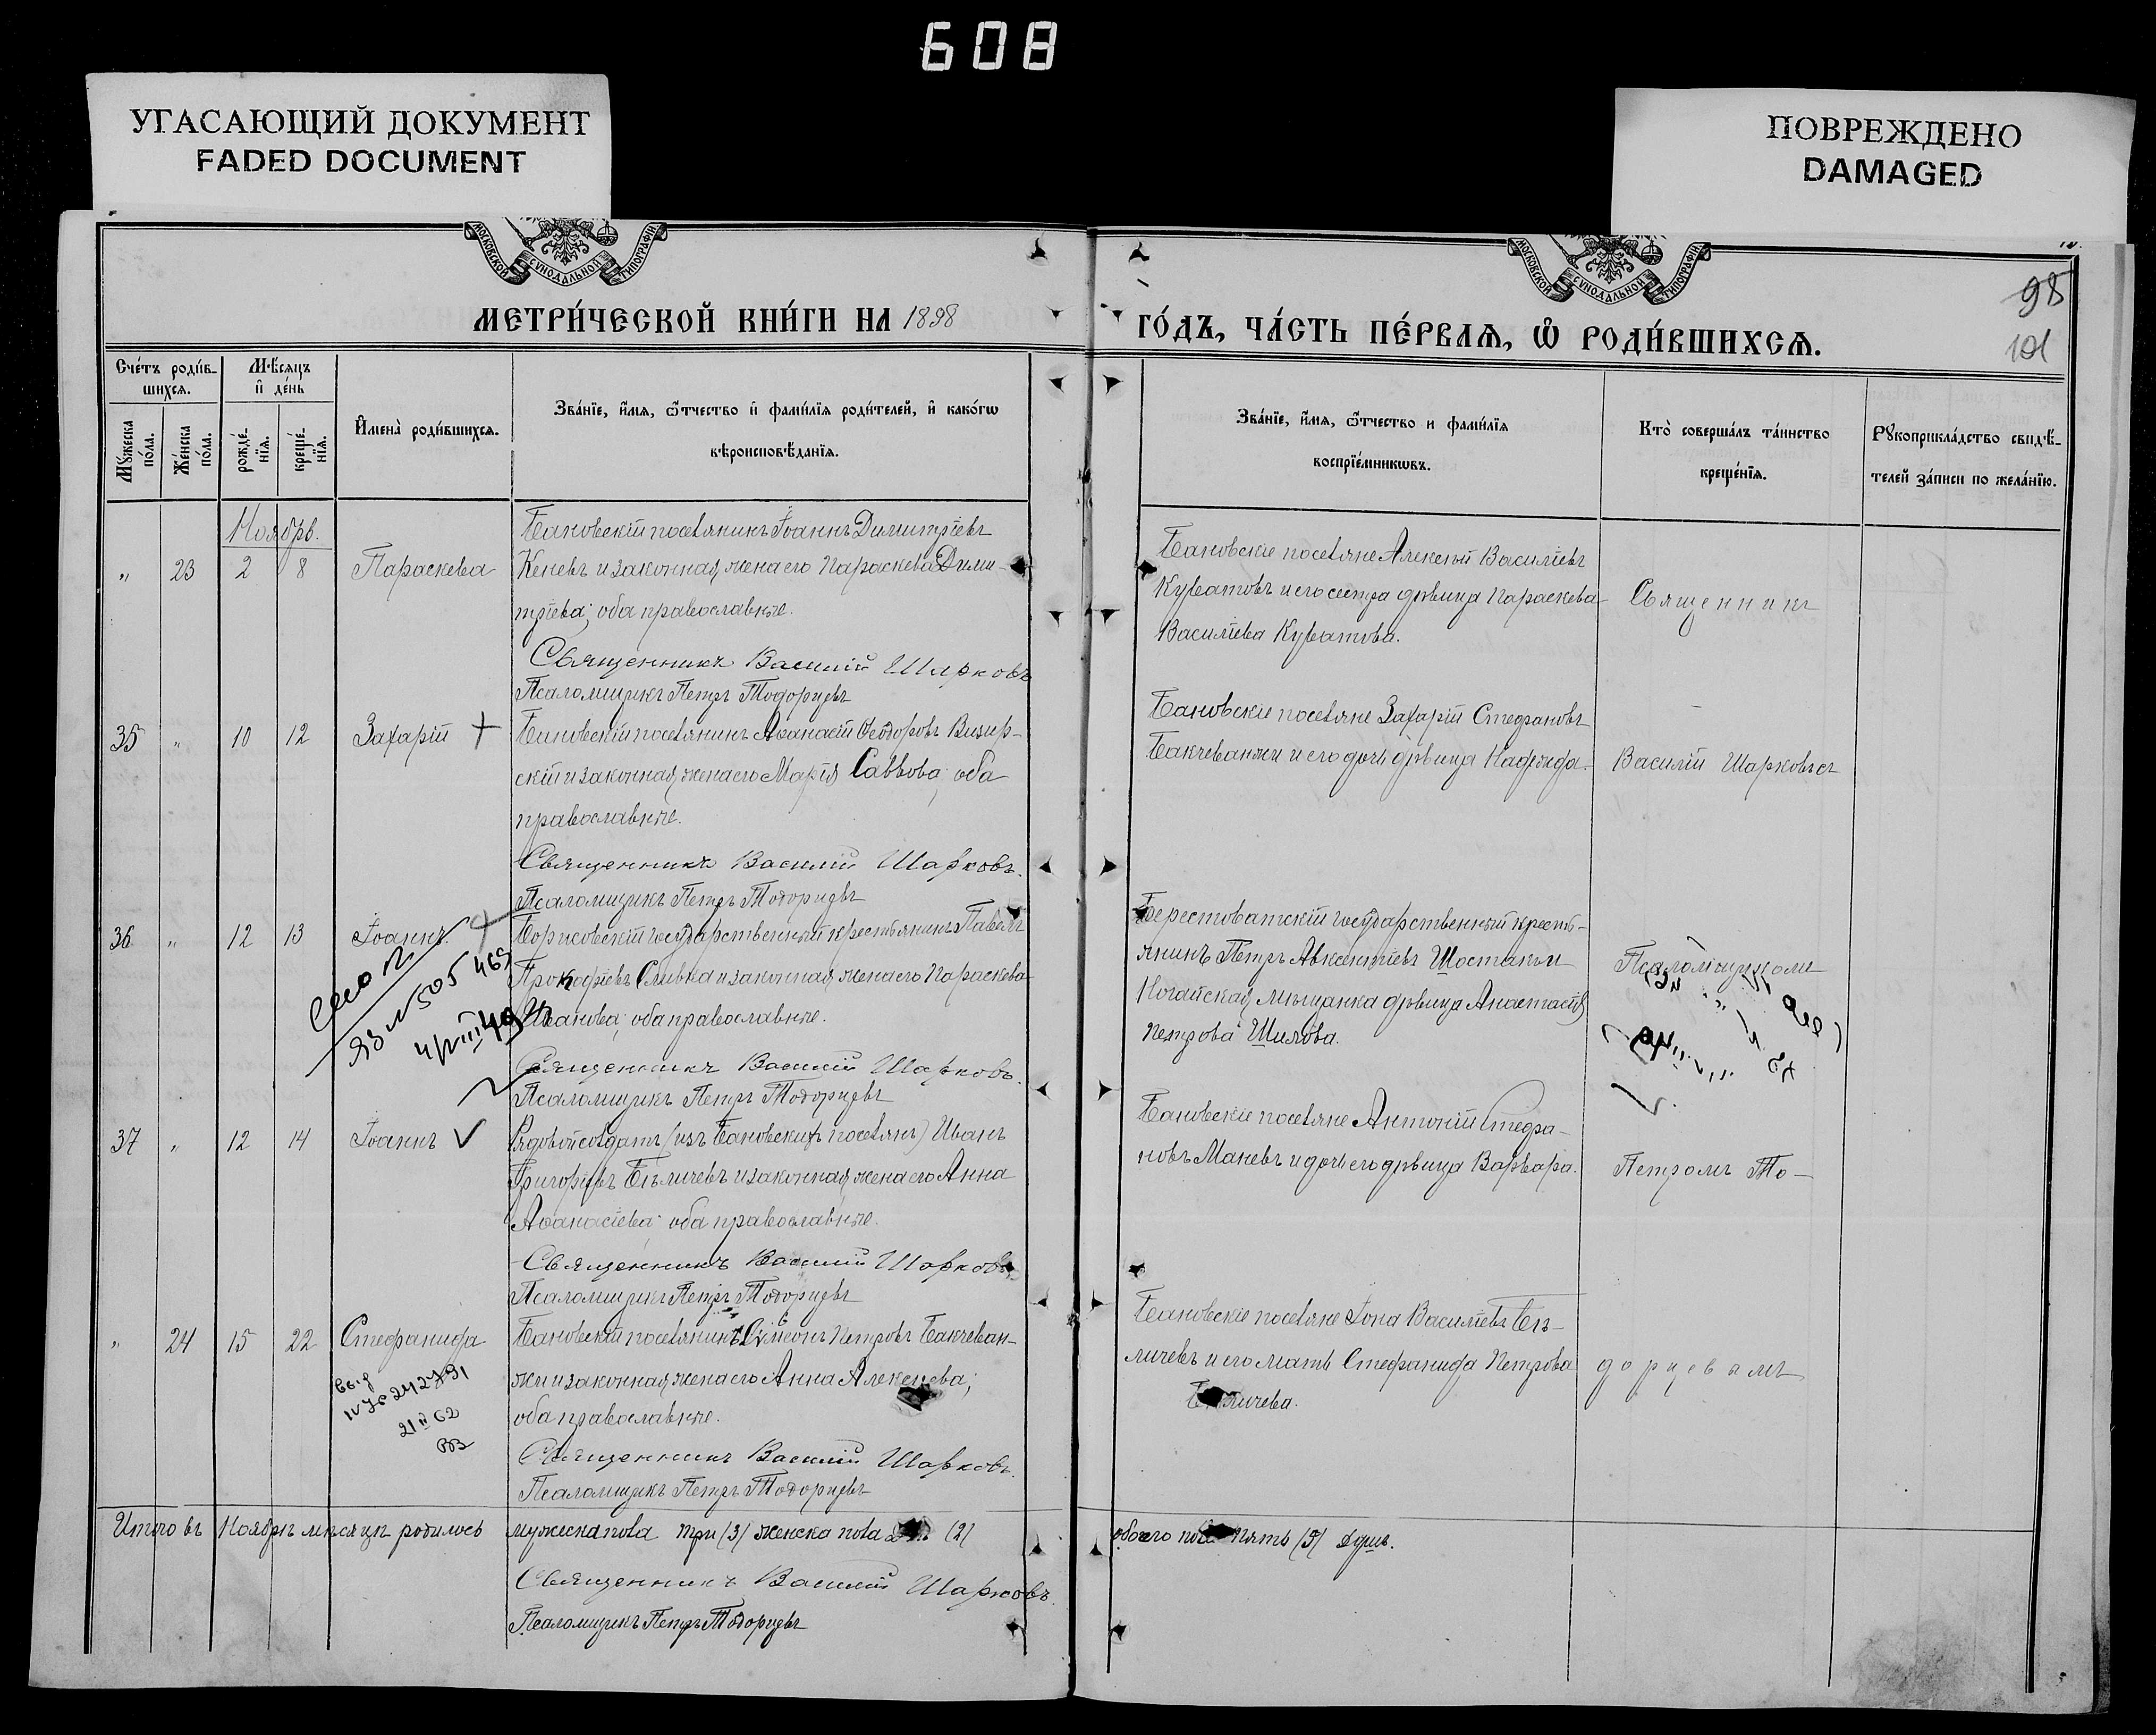 608
УГАСАЮЩИЙ ДОКУМЕНТ
FADED DOCUMENT
ПОВРЕЖДЕНО
DAMAGED
МОСКОВСКОЙ СУНОДАЛЬНОЙ ТИПОГРАФІИ
МОСКОВСКОЙ СУНОДАЛЬНОЙ ТИПОГРАФІИ
98
101
МЕТРИ́ЧЕСКОЙ КНИ́ГИ НА 1898
ГО́ДЪ, ЧА́СТЬ ПЕ́РВАѦ, Ѽ РОДИ́ВШИХСѦ.
Сче́тъ роди́в-
шихсѧ.
Мѣ́сѧцъ
и҆ де́нь
Мꙋжеска по́ла.
Же́нска по́ла.
рожде́-
нїѧ.
креще́-
нїѧ.
И҆мена̀ роди́вшихсѧ.
Зва́нїе, и҆́мѧ, ѻ҆́тчество и҆ фами́лїѧ роди́телей, и҆ како́гѡ
вѣроисповѣ́данїѧ.
Зва́нїе, и҆́мѧ, ѻ҆́тчество и фами́лїѧ
воспрїе́мникѡвъ.
Кто̀ соверша́лъ та́инство
креще́нїѧ.
Рꙋкоприкла́дство свидѣ́-
телей за́писи по жела́нїю.
Ноябрь.
" 23 2 8 Параскева
Бановскій поселянинъ Іоаннъ Димитріевъ
Кеневъ и законная жена его Параскева Дими-
тріева; оба православные.
Священникъ Василій Шарковъ
Псаломщикъ Петръ Тодорцевъ
Бановскіе поселяне Алексѣй Василіевъ
Курватовъ и его сестра дѣвица Параскева
Василіева Курватова.
Священникъ
35 " 10 12 Захарій +
Бановскій поселянинъ Аѳанасій Ѳеодоровъ Визир-
скій и законная жена его Марія Саввова; оба
православные.
Священникъ Василій Шарковъ.
Псаломщикъ Петръ Тодорцевъ
Бановскіе поселяне Захарій Стефановъ
Бакчеванжи и его дочь дѣвица Надежда.
Василій Шарковъ съ
36 " 12 13 Іоаннъ. +
Борисовскій государственный крестьянинъ Павелъ
Прокофіевъ Сливка и законная жена его Параскева
Иванова; оба православные.
Священникъ Василій Шарковъ.
Псаломщикъ Петръ Тодорцевъ
Берестоватскій государственный кресть-
янинъ Петръ Авксентіевъ Шостакъ и
Ногайская мѣщанка дѣвица Анастасія
Петрова Шилова.
Псаломщикомъ
37 " 12 14 Іоаннъ V
Рядовой солдатъ (изъ Бановскихъ поселянъ) Иванъ
Григоріевъ Бѣличевъ и законная жена его Анна
Аѳанасіева; оба православные.
Священникъ Василій Шарковъ.
Псаломщикъ Петръ Тодорцевъ
Бановскіе поселяне Антоній Стефа-
новъ Маневъ и дочь его дѣвица Варвара.
Петромъ То-
" 24 15 22 Стефанида
Бановскій поселянинъ Симеонъ Петровъ Бакчеван-
жи и законная жена его Анна Алексѣева;
оба православные.
Священникъ Василій Шарковъ.
Псаломщикъ Петръ Тодорцевъ
Бановскіе поселяне Іона Василіевъ Бѣ-
личевъ и его мать Стефанида Петрова
дорцевымъ
Итого въ Ноябрѣ мѣсяцѣ родилось мужеска пола три (3) женска пола (2)
обоего пять (5) душъ.
Священникъ Василій Шарковъ.
Псаломщикъ Петръ Тодорцевъ